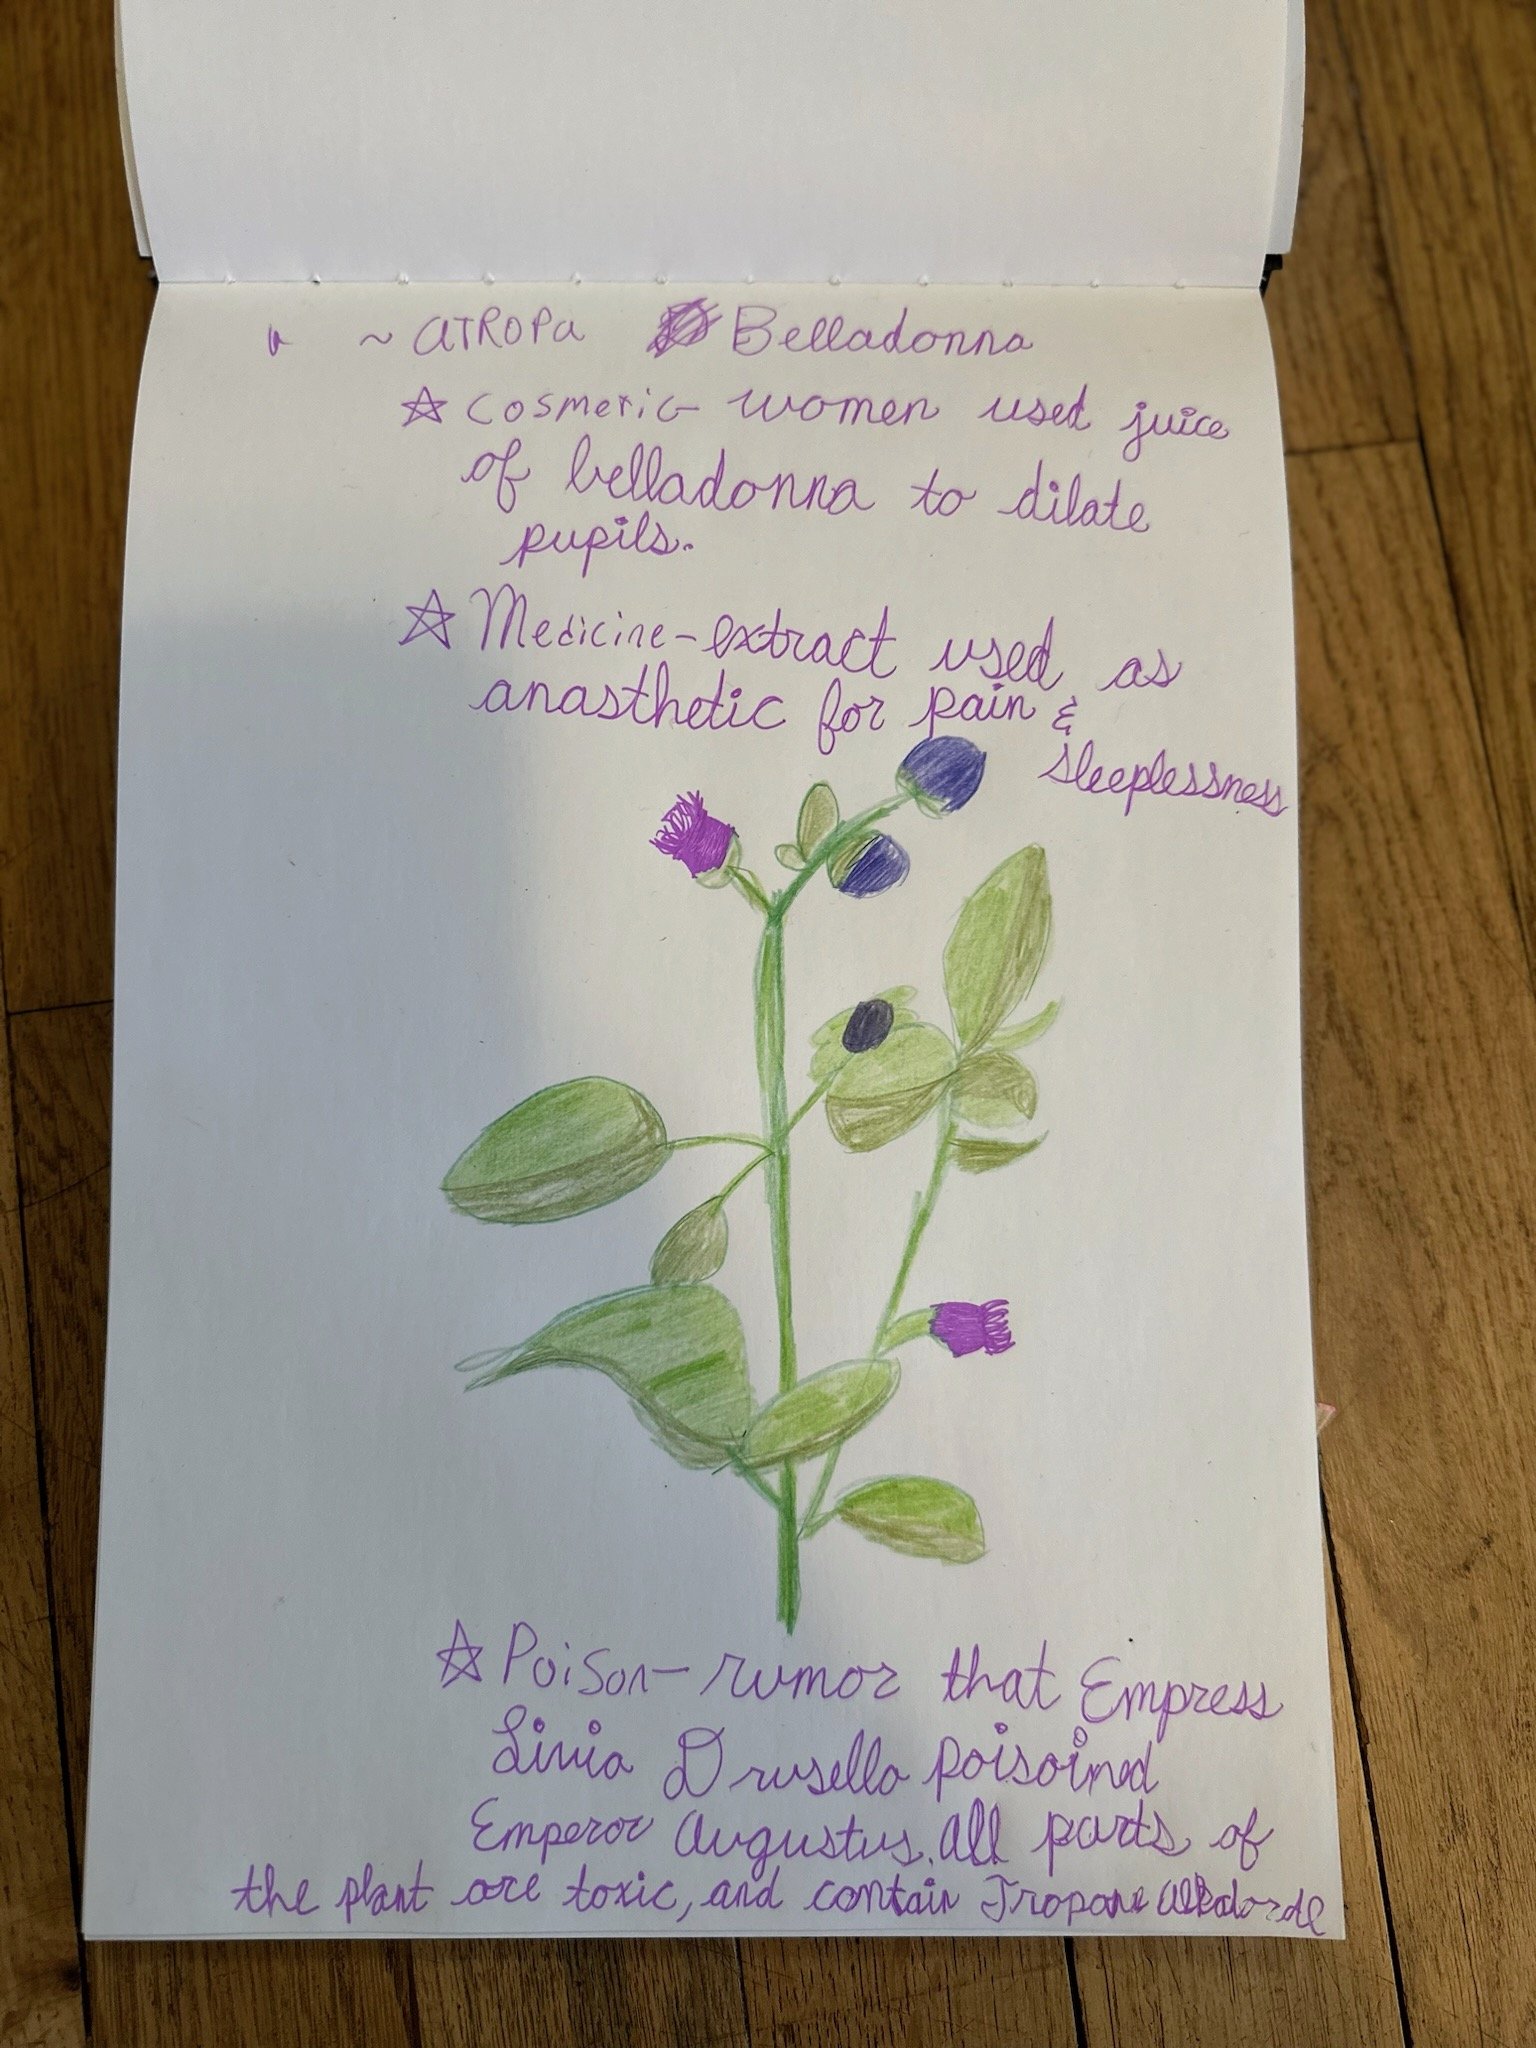 ~ ATROPA Belladonna
☆ Cosmetic- women used juice
of belladonna to dilate
pupils.
☆ Medicine-extract used as
anasthetic for pain &
sleeplessness
☆ Poison- rumor that Empress
Livia Drusella poisoined
Emperor Augustus. All parts of
the plant are toxic, and contain Tropane